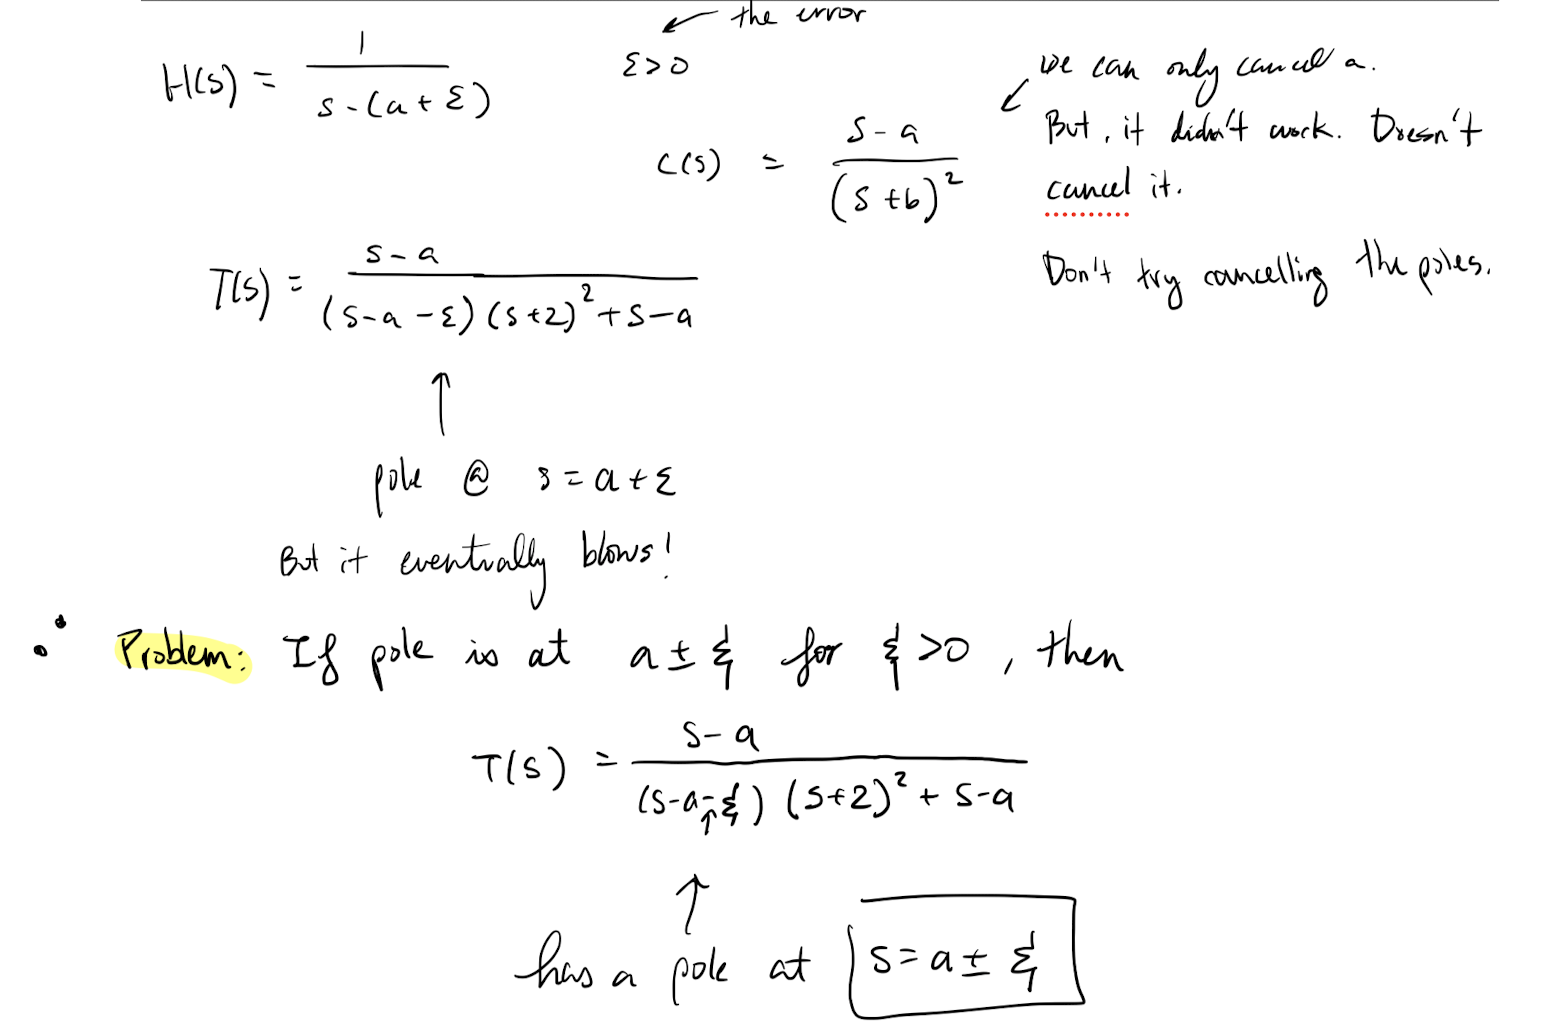 the error
H(s) = 1 / (s - (a + ε))
ε > 0
we can only cancel a.
But, it didn't work. Doesn't
cancel it.
C(s) = (s - a) / (s + b)²
Don't try cancelling the poles.
T(s) = (s - a) / ((s - a - ε)(s + 2)² + s - a)
pole @ s = a + ε
But it eventually blows!
Problem: If pole is at a ± ξ for ξ > 0, then
T(s) = (s - a) / ((s - a - ξ)(s + 2)² + s - a)
has a pole at s = a ± ξ